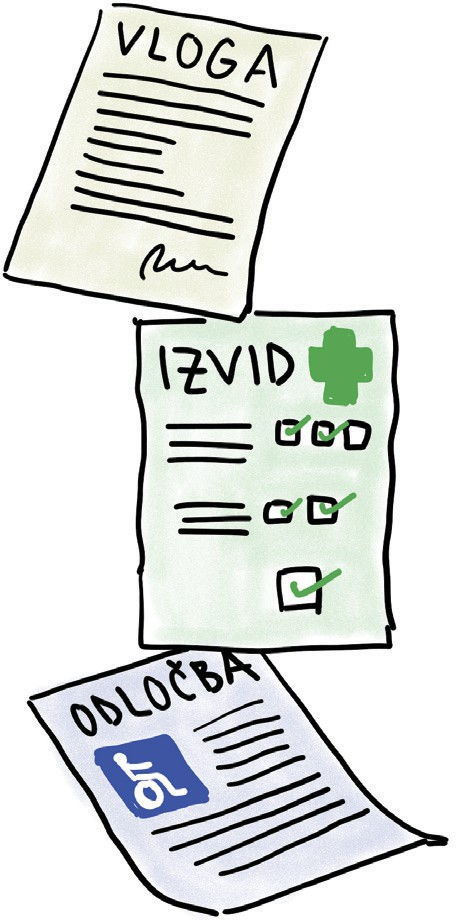 VLOGA
IZVID
ODLOČBA